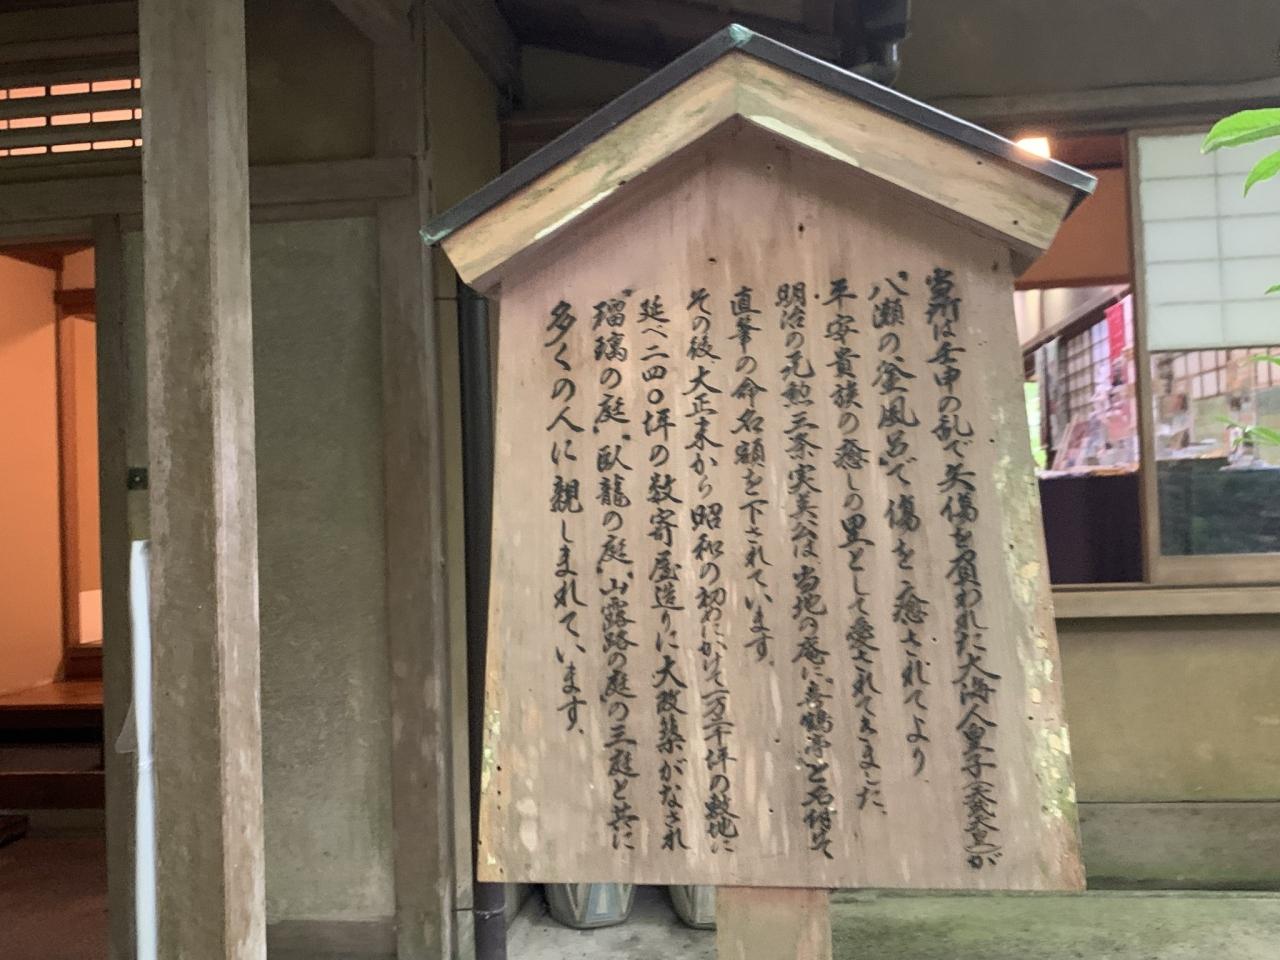 当所は壬申の乱で矢傷を負われた大海人皇子(天武天皇)が
"八瀬の釜風呂"で傷を癒されてより、
平安貴族の癒しの里として愛されてきました。
明治の元勲三条実美公は、当地の庵に"喜鶴亭"と名付けて
直筆の命名額を下されています。
その後、大正末から昭和の初めにかけて一万二千坪の敷地に
延べ二四〇坪の数寄屋造りに大改築がなされ
"瑠璃の庭""臥龍の庭""山露路の庭"の三庭と共に
多くの人に親しまれています。